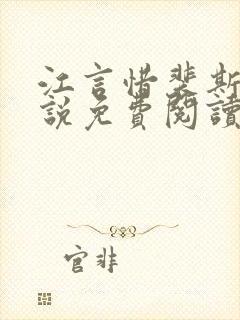 江言惜裴斯
說免費閱讀
官非